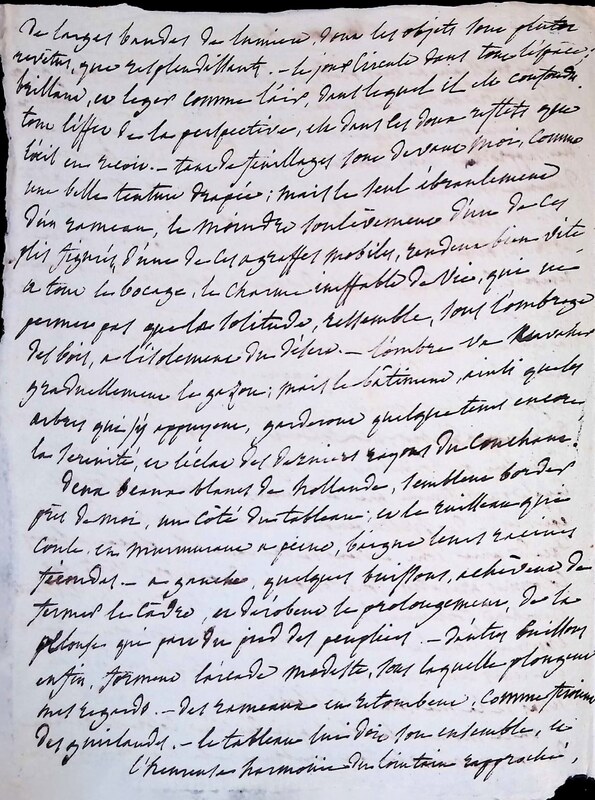 De larges bandes de lumiere, dont les objets sont plutot
revêtus, que resplendissant. – le jour circule dans tout l'espace;
brillant, et leger comme l'air, dans lequel il se confond.
tout l'effet de la perspective, est dans les doux reflets que
l'œil en recoit. – tant de feuillages sont devant moi, comme
une belle tenture drapée; mais le seul ébranlement
d'un rameau, le moindre soulèvement d'un de ces
plis figurés, d'une de ces agraffes mobiles, rendent bien vite
a tout le bocage, le charme ineffable de vie, qui ne
permet pas que la solitude, ressemble, sous l'ombrage
des bois, a l'isolement du désert. – l'ombre va
graduellement le gazon; mais le bâtiment, ainsi que les
arbres qui s'y appuyent, garderont quelque tems encore
la serenité, et l'éclat des derniers rayons du Couchant.
Deux beaux blancs de hollande, semblent border
près de moi, un côté du tableau; et le ruisseau qui
coule, en murmurant a peine, baigne leurs racines
fécondes. – a gauche, quelques buissons, achèvent de
fermer le Cadre, et dérobent le prolongement, de la
pelouse qui part du pied des peupliers. – d'autres buissons
enfin, forment l'arcade modeste, sous laquelle plongent
mes regards. – des rameaux en retombent, comme
des guirlandes. – le tableau lui doit son ensemble, et
l'heureuse harmonie du lointain rapproché,